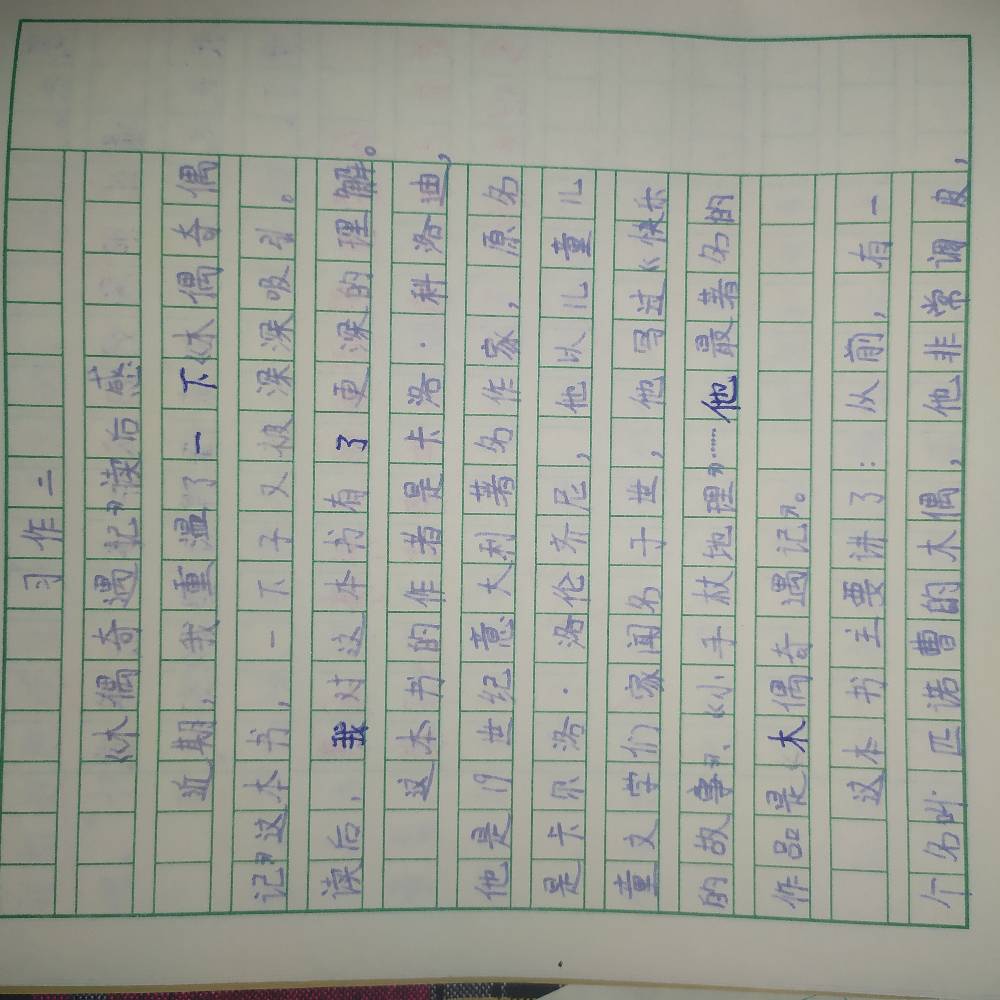 习作二
《木偶奇遇记》读后感
近期，我重温了一下《木偶奇偶
记》这本书，一下子又被深深吸引。
读后，我对这本书有了更深的理解。
这本书的作者是卡洛·科洛迪，
他是19世纪意大利著名作家，原名
是卡尔洛·洛伦齐尼，他以儿童儿
童文学们家闻名于世，他写过《快乐
的故事》、《小手杖地理》……他最著名的
作品是《木偶奇遇记》。
这本书主要讲了：从前，有一
个名叫匹诺曹的木偶，他非常调皮，